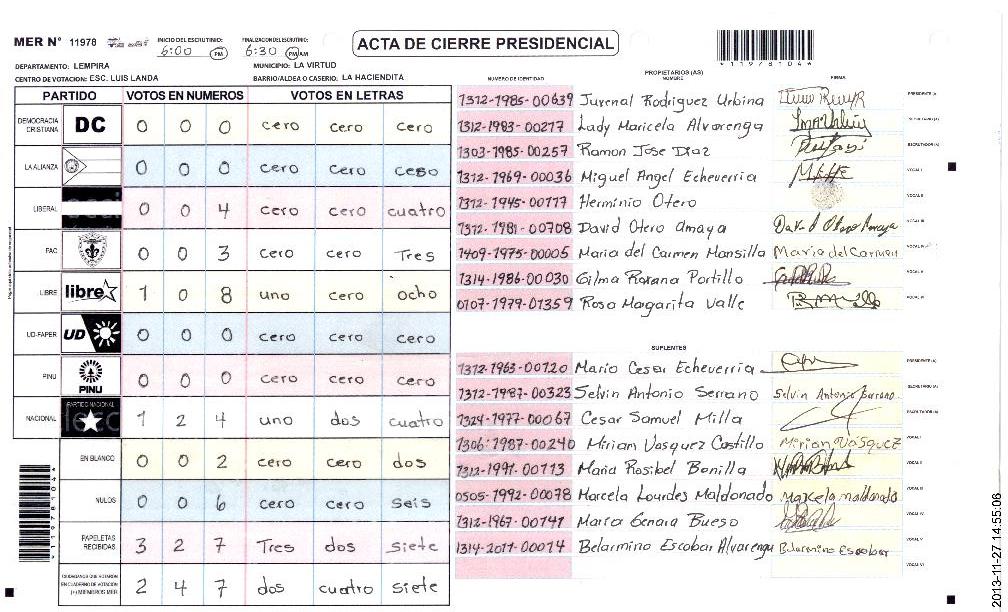 MER N° 11978
INICIO DEL ESCRUTINIO: 6:00 PM
FINALIZACION DEL ESCRUTINIO: 6:30 PM AM
ACTA DE CIERRE PRESIDENCIAL
*11978104*
DEPARTAMENTO: LEMPIRA MUNICIPIO: LA VIRTUD
CENTRO DE VOTACION: ESC. LUIS LANDA BARRIO/ALDEA O CASERIO: LA HACIENDITA
PARTIDO VOTOS EN NUMEROS VOTOS EN LETRAS
DEMOCRACIA CRISTIANA DC 0 0 0 cero cero cero
LA ALIANZA 0 0 0 cero cero cero
LIBERAL 0 0 4 cero cero cuatro
PAC 0 0 3 cero cero Tres
LIBRE libre 1 0 8 uno cero ocho
UD-FAPER UD 0 0 0 cero cero cero
PINU PINU 0 0 0 cero cero cero
NACIONAL PARTIDO NACIONAL 1 2 4 uno dos cuatro
EN BLANCO 0 0 2 cero cero dos
NULOS 0 0 6 cero cero seis
PAPELETAS RECIBIDAS 3 2 7 Tres dos siete
CIUDADANOS QUE VOTARON EN CUADERNO DE VOTACION (+) MIEMBROS MER 2 4 7 dos cuatro siete
*11978104*
PROPIETARIOS (AS)
NUMERO DE IDENTIDAD NOMBRE FIRMA
1312-1985-00639 Juvenal Rodriguez Urbina PRESIDENTE (A)
1312-1983-00217 Lady Maricela Alvarenga SECRETARIO (A)
1303-1985-00257 Ramon Jose Diaz ESCRUTADOR (A)
1312-1969-00036 Miguel Angel Echeverria VOCAL I
1312-1945-00117 Herminio Otero VOCAL II
1312-1981-00708 David Otero Amaya David Otero Amaya VOCAL III
1409-1975-00005 Maria del Carmen Mansilla Maria del Carmen VOCAL IV
1314-1986-00030 Gilma Roxana Portillo VOCAL V
0107-1979-01359 Rosa Margarita Valle VOCAL VI
SUPLENTES
1312-1963-00120 Mario Cesar Echeverria PRESIDENTE (A)
1312-1987-00323 Selvin Antonio Serrano Selvin Antonio Serrano SECRETARIO (A)
1324-1977-00067 Cesar Samuel Milla ESCRUTADOR (A)
1306-1987-00240 Miriam Vasquez Castillo Mirian Vasquez VOCAL I
1312-1991-00113 Maria Rosibel Bonilla VOCAL II
0505-1992-00078 Marcela Lourdes Maldonado Marcela maldonado VOCAL III
1312-1967-00141 Maria Genara Bueso VOCAL IV
1314-2011-00014 Belarmino Escobar Alvarenga Belarmino Escobar VOCAL V
VOCAL VI
2013-11-27 14:55:06